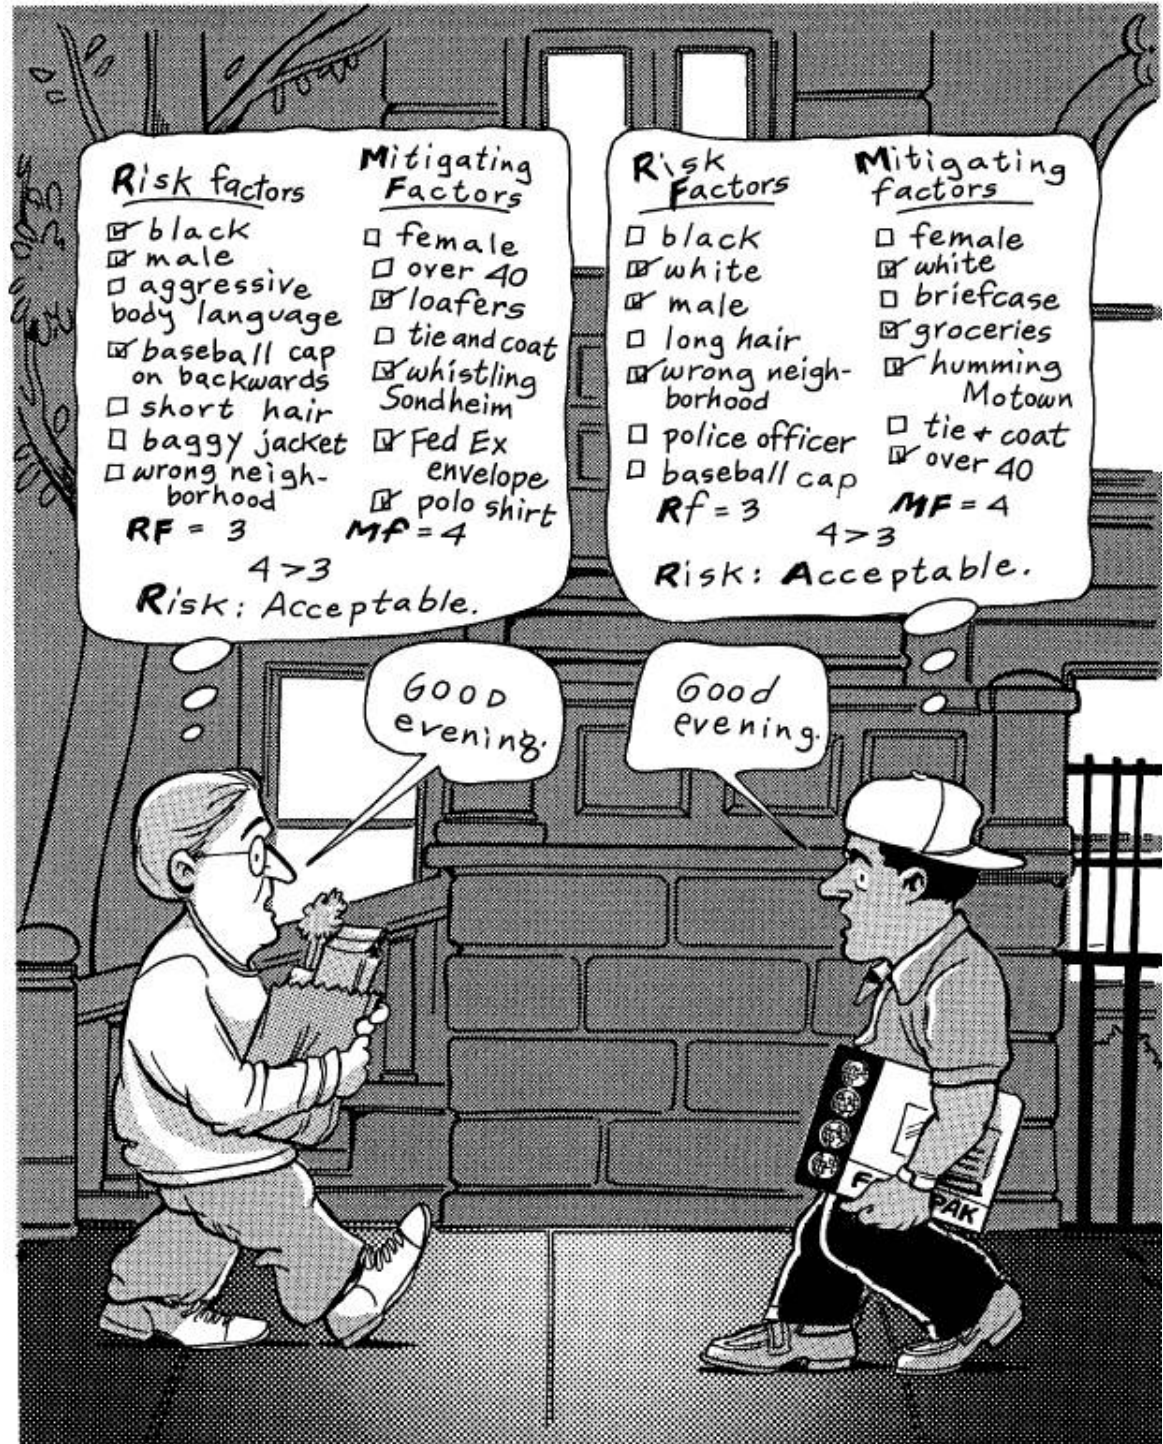 Risk factors
☑ black
☑ male
☐ aggressive
body language
☑ baseball cap
on backwards
☐ short hair
☐ baggy jacket
☐ wrong neigh-
borhood
RF = 3
Mitigating
Factors
☐ female
☐ over 40
☑ loafers
☐ tie and coat
☑ whistling
Sondheim
☑ Fed Ex
envelope
☑ polo shirt
Mf = 4
4 > 3
Risk: Acceptable.
Risk
Factors
☐ black
☑ white
☑ male
☐ long hair
☑ wrong neigh-
borhood
☐ police officer
☐ baseball cap
Rf = 3
Mitigating
factors
☐ female
☑ white
☐ briefcase
☑ groceries
☑ humming
Motown
☐ tie + coat
☑ over 40
MF = 4
4 > 3
Risk: Acceptable.
GOOD
evening.
Good
evening.
PAK